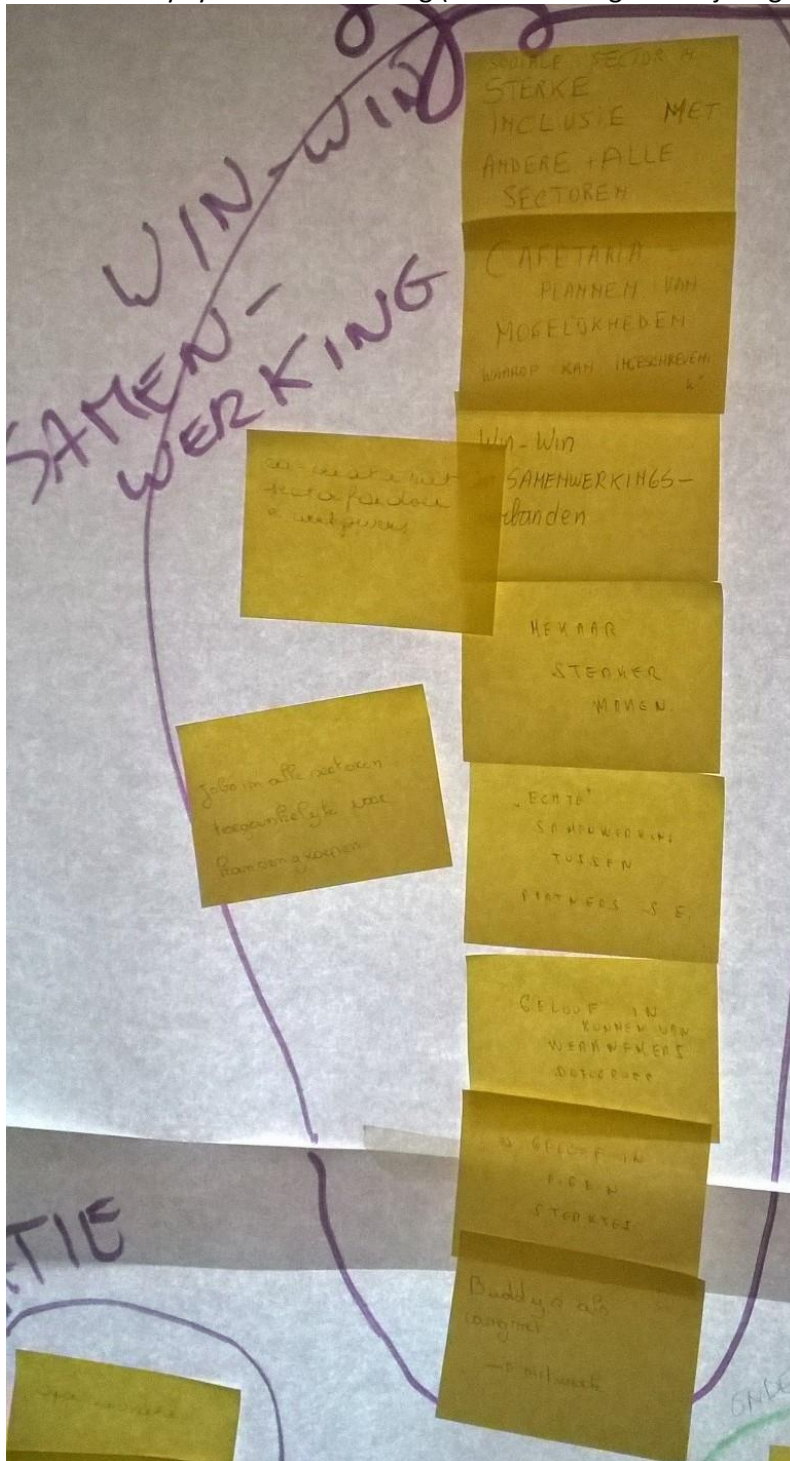 WIN-WIN
SAMEN-
WERKING
SOCIALE SECTOR
STERKE
INCLUSIE MET
ANDERE + ALLE
SECTOREN
CAFETARIA -
PLANNEN VAN
MOGELIJKHEDEN
WAAROP KAN INGESCHREVEN
Win-Win
SAMENWERKINGS-
rbanden
co-creatie met
MEKAAR
STERKER
MAKEN
Jobs in alle sectoren
toegankelijk voor
"ECHTE"
SAMENWERKING
TUSSEN
PARTNERS S.E.
GELOOF IN
KUNNEN VAN
WERKNEMERS
DOELGROEP
GELOOF IN
EIGEN
STERKTES
Buddy's als
TIE
ONDE